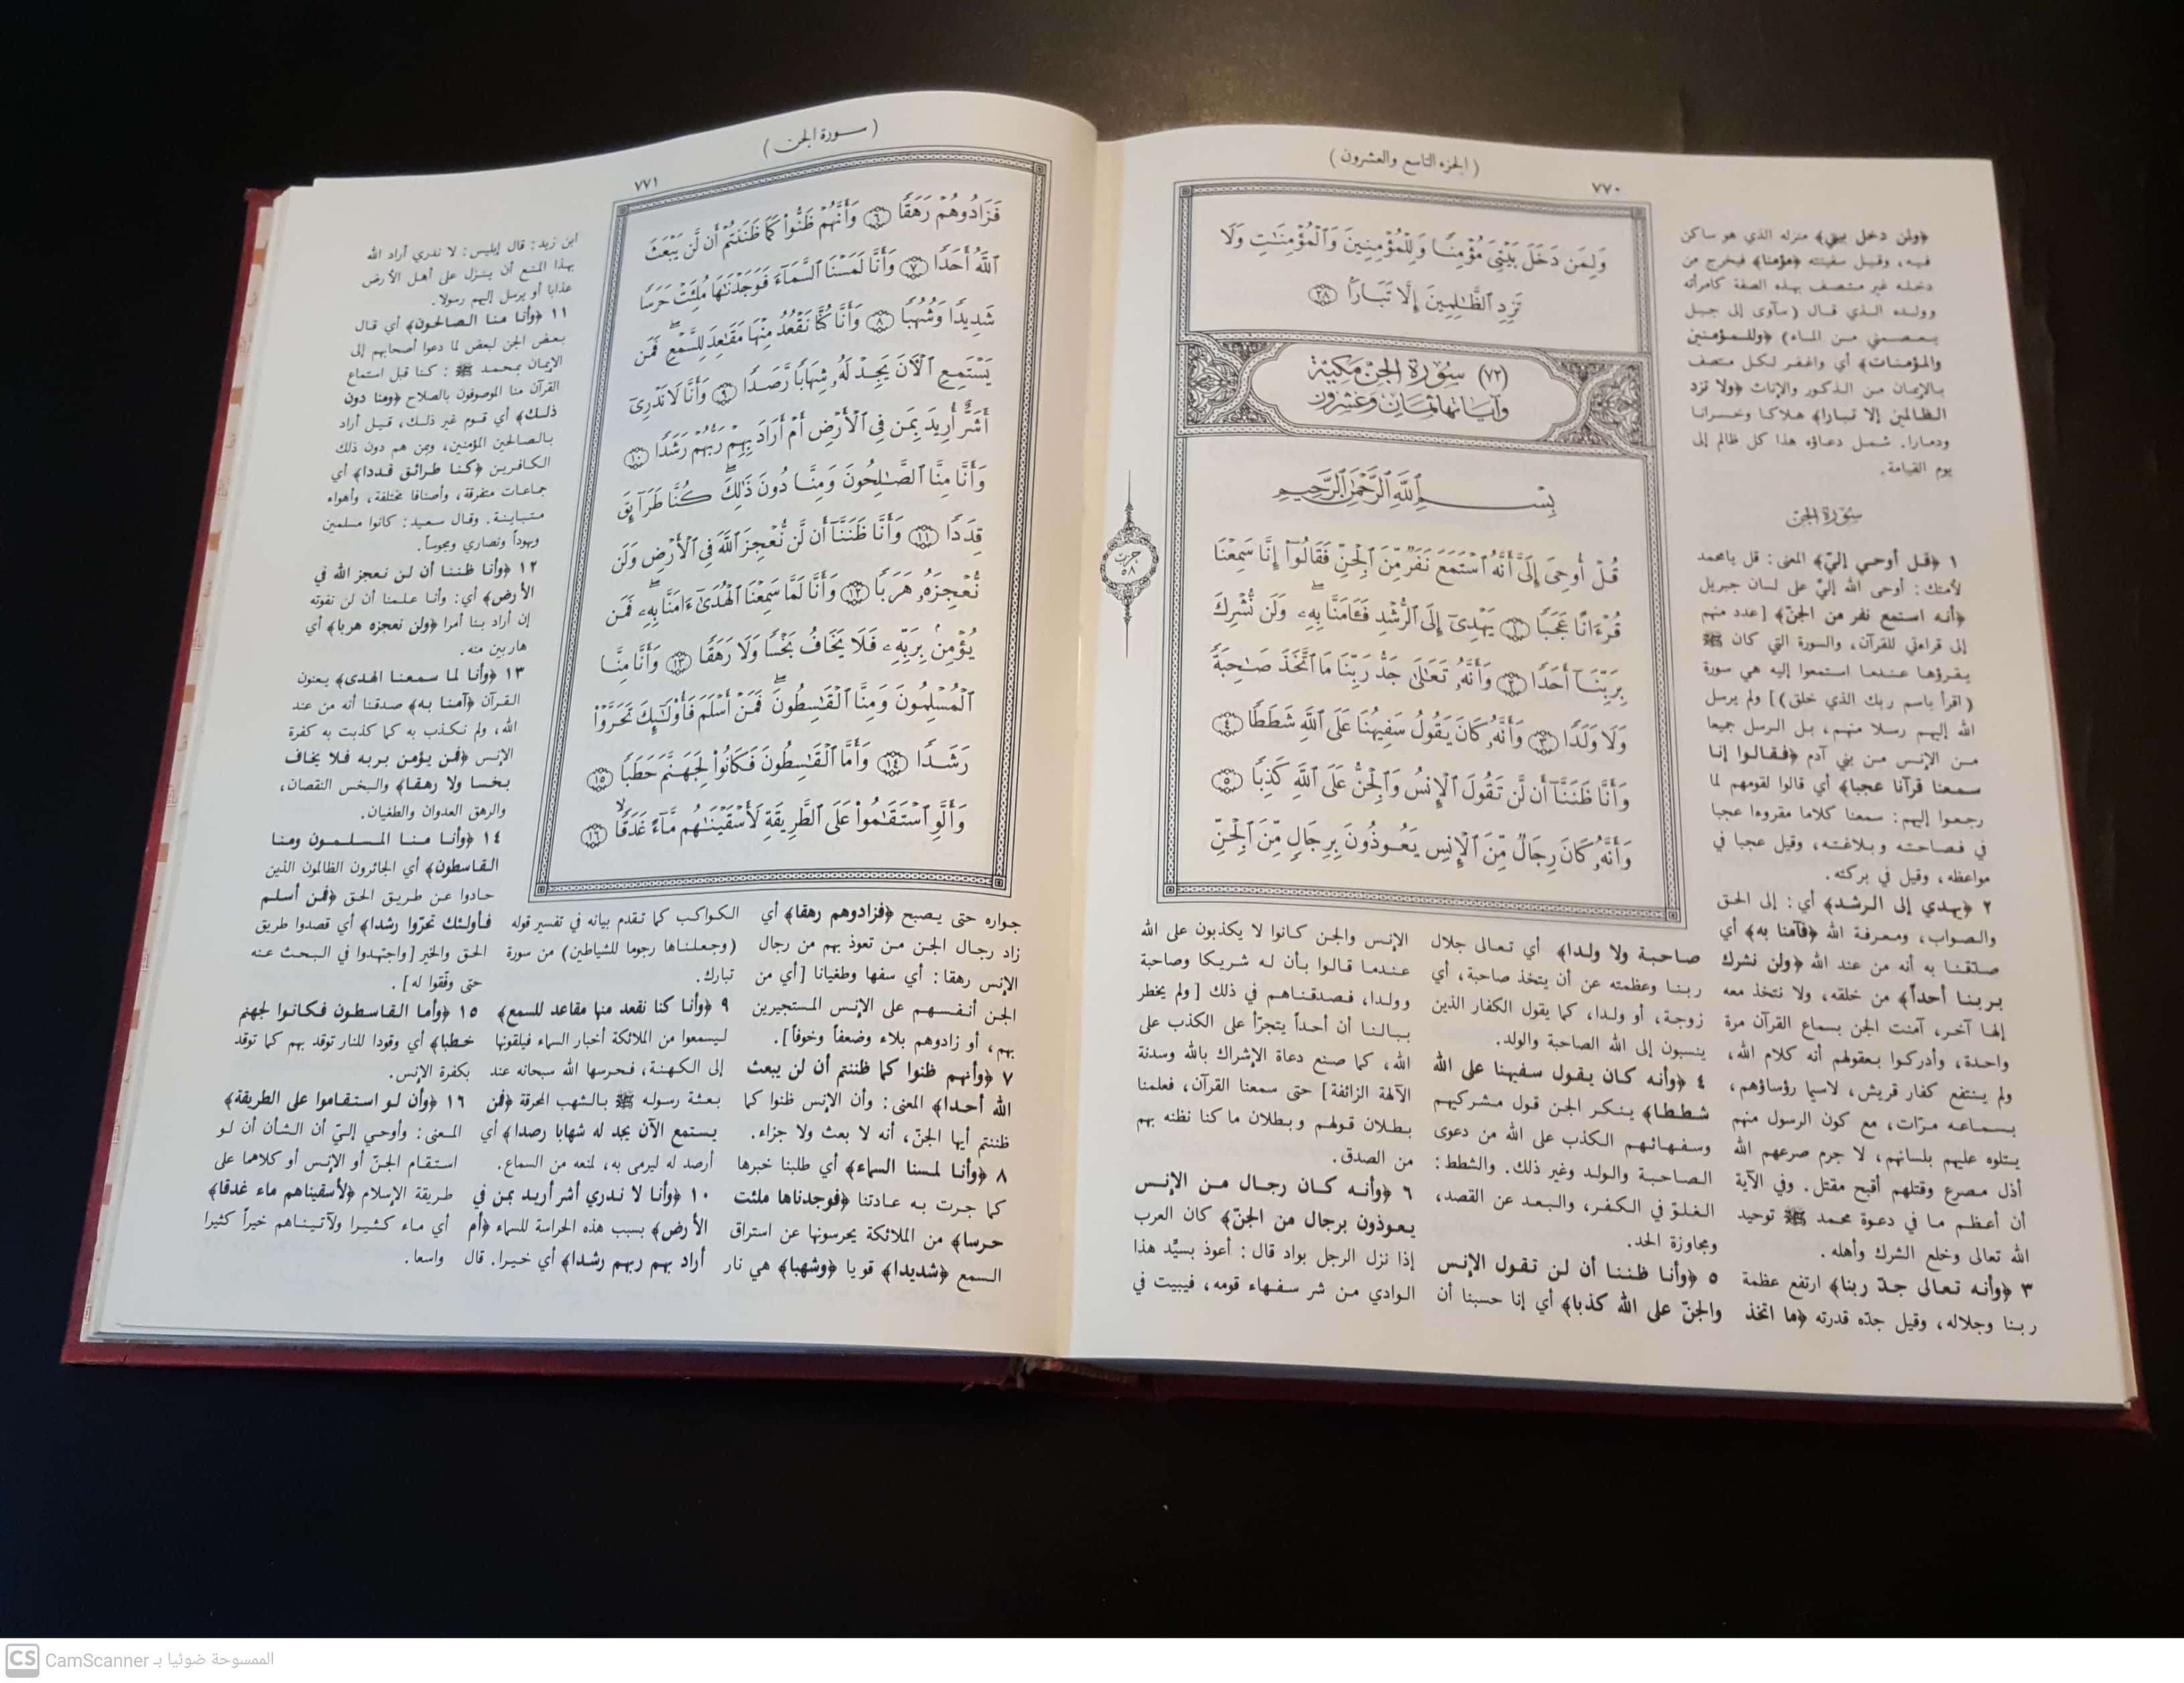 ( الجزء التاسع والعشرون )
٧٧٠
وَلِمَن دَخَلَ بَيْتِىَ مُؤْمِنًا وَلِلْمُؤْمِنِينَ وَالْمُؤْمِنَٰتِ وَلَا
تَزِدِ الظَّٰلِمِينَ إِلَّا تَبَارًا ٢٨
(٧٢) سُورَة الجِنّ مَكيّة
وَآيَاتهَا ثمَان وَعشرُون
بِسْمِ اللَّهِ الرَّحْمَٰنِ الرَّحِيمِ
قُلْ أُوحِىَ إِلَىَّ أَنَّهُ اسْتَمَعَ نَفَرٌ مِّنَ الْجِنِّ فَقَالُوٓا إِنَّا سَمِعْنَا
قُرْءَانًا عَجَبًا ١ يَهْدِىٓ إِلَى الرُّشْدِ فَـَٔامَنَّا بِهِۦ وَلَن نُّشْرِكَ
بِرَبِّنَآ أَحَدًا ٢ وَأَنَّهُۥ تَعَٰلَىٰ جَدُّ رَبِّنَا مَا اتَّخَذَ صَٰحِبَةً
وَلَا وَلَدًا ٣ وَأَنَّهُۥ كَانَ يَقُولُ سَفِيهُنَا عَلَى اللَّهِ شَطَطًا ٤
وَأَنَّا ظَنَنَّآ أَن لَّن تَقُولَ الْإِنسُ وَالْجِنُّ عَلَى اللَّهِ كَذِبًا ٥
وَأَنَّهُۥ كَانَ رِجَالٌ مِّنَ الْإِنسِ يَعُوذُونَ بِرِجَالٍ مِّنَ الْجِنِّ
حزب
٥٨
﴿ولمن دخل بيتي﴾ منزله الذي هو ساكن
فيه، وقيل سفينته ﴿مؤمنا﴾ فيخرج من
دخله غير متصف بهذه الصفة كامرأته
وولده الذي قال (سآوى إلى جبل
يعصمني من الماء) ﴿وللمؤمنين
والمؤمنات﴾ أي واغفر لكل متصف
بالإيمان من الذكور والإناث ﴿ولا تزد
الظالمين إلا تبارا﴾ هلاكا وخسرانا
ودمارا. شمل دعاؤه هذا كل ظالم إلى
يوم القيامة.
سُورَة الجن
١ ﴿قل أوحي إليّ﴾ المعنى: قل يامحمد
لأمتك: أوحى الله إليّ على لسان جبريل
﴿أنه استمع نفر من الجنّ﴾ [عدد منهم
إلى قراءتي للقرآن، والسورة التي كان ﷺ
يقرؤها عندما استمعوا إليه هي سورة
(اقرأ باسم ربك الذي خلق)] ولم يرسل
الله إليهم رسلا منهم، بل الرسل جميعا
من الإنس من بني آدم ﴿فقالوا إنا
سمعنا قرآنا عجبا﴾ أي قالوا لقومهم لما
رجعوا إليهم: سمعنا كلاما مقروءا عجبا
في فصاحته وبلاغته، وقيل عجبا في
مواعظه، وقيل في بركته.
٢ ﴿يهدي إلى الرشد﴾ أي: إلى الحق
والصواب، ومعرفة الله ﴿فآمنا به﴾ أي
صدّقنا به أنه من عند الله ﴿ولن نشرك
بربنا أحداً﴾ من خلقه، ولا نتخذ معه
إلها آخر، آمنت الجن بسماع القرآن مرة
واحدة، وأدركوا بعقولهم أنه كلام الله،
ولم ينتفع كفار قريش، لاسيما رؤساؤهم،
بسماعه مرّات، مع كون الرسول منهم
يتلوه عليهم بلسانهم، لا جرم صرعهم الله
أذل مصرع وقتلهم أقبح مقتل. وفي الآية
أن أعظم ما في دعوة محمد ﷺ توحيد
الله تعالى وخلع الشرك وأهله.
٣ ﴿وأنه تعالى جدّ ربنا﴾ ارتفع عظمة
ربنا وجلاله، وقيل جدّه قدرته ﴿ما اتخذ
صاحبة ولا ولدا﴾ أي تعالى جلال
ربنا وعظمته عن أن يتخذ صاحبة، أي
زوجة، أو ولدا، كما يقول الكفار الذين
ينسبون إلى الله الصاحبة والولد.
٤ ﴿وأنه كان يقول سفيهنا على الله
شططا﴾ ينكر الجن قول مشركيهم
وسفهائهم الكذب على الله من دعوى
الصاحبة والولد وغير ذلك. والشطط:
الغلوّ في الكفر، والبعد عن القصد،
ومجاوزة الحد.
٥ ﴿وأنا ظننا أن لن تقول الإنس
والجنّ على الله كذبا﴾ أي إنا حسبنا أن
الإنس والجن كانوا لا يكذبون على الله
عندما قالوا بأن له شريكا وصاحبة
وولدا، فصدقناهم في ذلك [ولم يخطر
ببالنا أن أحداً يتجرّأ على الكذب على
الله، كما صنع دعاة الإشراك بالله وسدنة
الآلهة الزائفة] حتى سمعنا القرآن، فعلمنا
بطلان قولهم وبطلان ما كنا نظنه بهم
من الصدق.
٦ ﴿وأنه كان رجال من الإنس
يعوذون برجال من الجنّ﴾ كان العرب
إذا نزل الرجل بواد قال: أعوذ بسيّد هذا
الوادي من شر سفهاء قومه، فيبيت في
( سورة الجن )
٧٧١
فَزَادُوهُمْ رَهَقًا ٦ وَأَنَّهُمْ ظَنُّوا كَمَا ظَنَنتُمْ أَن لَّن يَبْعَثَ
اللَّهُ أَحَدًا ٧ وَأَنَّا لَمَسْنَا السَّمَآءَ فَوَجَدْنَٰهَا مُلِئَتْ حَرَسًا
شَدِيدًا وَشُهُبًا ٨ وَأَنَّا كُنَّا نَقْعُدُ مِنْهَا مَقَٰعِدَ لِلسَّمْعِ فَمَن
يَسْتَمِعِ الْءَانَ يَجِدْ لَهُۥ شِهَابًا رَّصَدًا ٩ وَأَنَّا لَا نَدْرِىٓ
أَشَرٌّ أُرِيدَ بِمَن فِى الْأَرْضِ أَمْ أَرَادَ بِهِمْ رَبُّهُمْ رَشَدًا ١٠
وَأَنَّا مِنَّا الصَّٰلِحُونَ وَمِنَّا دُونَ ذَٰلِكَ كُنَّا طَرَآئِقَ
قِدَدًا ١١ وَأَنَّا ظَنَنَّآ أَن لَّن نُّعْجِزَ اللَّهَ فِى الْأَرْضِ وَلَن
نُّعْجِزَهُۥ هَرَبًا ١٢ وَأَنَّا لَمَّا سَمِعْنَا الْهُدَىٰٓ ءَامَنَّا بِهِۦ فَمَن
يُؤْمِنۢ بِرَبِّهِۦ فَلَا يَخَافُ بَخْسًا وَلَا رَهَقًا ١٣ وَأَنَّا مِنَّا
الْمُسْلِمُونَ وَمِنَّا الْقَٰسِطُونَ فَمَنْ أَسْلَمَ فَأُولَٰٓئِكَ تَحَرَّوْا
رَشَدًا ١٤ وَأَمَّا الْقَٰسِطُونَ فَكَانُوا لِجَهَنَّمَ حَطَبًا ١٥
وَأَلَّوِ اسْتَقَٰمُوا عَلَى الطَّرِيقَةِ لَأَسْقَيْنَٰهُم مَّآءً غَدَقًا ١٦
جواره حتى يصبح ﴿فزادوهم رهقا﴾ أي
زاد رجال الجن من تعوذ بهم من رجال
الإنس رهقا: أي سفها وطغيانا [أي من
الجن أنفسهم على الإنس المستجيرين
بهم، أو زادوهم بلاء وضعفاً وخوفاً].
٧ ﴿وأنهم ظنوا كما ظننتم أن لن يبعث
الله أحدا﴾ المعنى: وأن الإنس ظنوا كما
ظننتم أيها الجنّ، أنه لا بعث ولا جزاء.
٨ ﴿وأنا لمسنا السماء﴾ أي طلبنا خبرها
كما جرت به عادتنا ﴿فوجدناها ملئت
حرسا﴾ من الملائكة يحرسونها عن استراق
السمع ﴿شديدا﴾ قويا ﴿وشهبا﴾ هي نار
الكواكب كما تقدم بيانه في تفسير قوله
(وجعلناها رجوما للشياطين) من سورة
تبارك.
٩ ﴿وأنا كنا نقعد منها مقاعد للسمع﴾
ليسمعوا من الملائكة أخبار السماء فيلقونها
إلى الكهنة، فحرسها الله سبحانه عند
بعثة رسوله ﷺ بالشهب المحرقة ﴿فمن
يستمع الآن يجد له شهابا رصدا﴾ أي
أرصد له ليرمى به، لمنعه من السماع.
١٠ ﴿وأنا لا ندري أشر أريد بمن في
الأرض﴾ بسبب هذه الحراسة للسماء ﴿أم
أراد بهم ربهم رشدا﴾ أي خيرا. قال
ابن زيد: قال إبليس: لا ندري أراد الله
بهذا المنع أن ينزل على أهل الأرض
عذابا أو يرسل إليهم رسولا.
١١ ﴿وأنا منا الصالحون﴾ أي قال
بعض الجن لبعض لما دعوا أصحابهم إلى
الإيمان بمحمد ﷺ: كنا قبل استماع
القرآن منا الموصوفون بالصلاح ﴿ومنا دون
ذلك﴾ أي قوم غير ذلك، قيل أراد
بالصالحين المؤمنين، وبمن هم دون ذلك
الكافرين ﴿كنا طرائق قددا﴾ أي
جماعات متفرقة، وأصنافا مختلفة، وأهواء
متباينة. وقال سعيد: كانوا مسلمين
ويهوداً ونصارى ومجوساً.
١٢ ﴿وأنا ظننا أن لن نعجز الله في
الأرض﴾ أي: وأنا علمنا أن لن نفوته
إن أراد بنا أمرا ﴿ولن نعجزه هربا﴾ أي
هاربين منه.
١٣ ﴿وأنا لما سمعنا الهدى﴾ يعنون
القرآن ﴿آمنا به﴾ صدقنا أنه من عند
الله، ولم نكذب به كما كذبت به كفرة
الإنس ﴿فمن يؤمن بربه فلا يخاف
بخسا ولا رهقا﴾ والبخس النقصان،
والرهق العدوان والطغيان.
١٤ ﴿وأنا منا المسلمون ومنا
القاسطون﴾ أي الجائرون الظالمون الذين
حادوا عن طريق الحق ﴿فمن أسلم
فأولئك تحرّوا رشدا﴾ أي قصدوا طريق
الحق والخير [واجتهدوا في البحث عنه
حتى وفّقوا له].
١٥ ﴿وأما القاسطون فكانوا لجهنم
حطبا﴾ أي وقودا للنار توقد بهم كما توقد
بكفرة الإنس.
١٦ ﴿وأن لو استقاموا على الطريقة﴾
المعنى: وأوحي إليّ أن الشأن أن لو
استقام الجنّ أو الإنس أو كلاهما على
طريقة الإسلام ﴿لأسقيناهم ماء غدقا﴾
أي ماء كثيرا ولآتيناهم خيراً كثيرا
واسعا.
CS الممسوحة ضوئيا بـ CamScanner